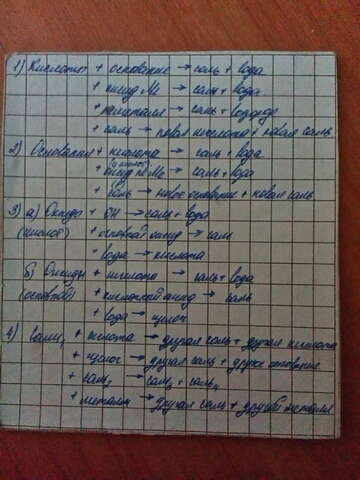 1) Кислоты + основание → соль + вода
+ оксид Ме → соль + вода
+ металл → соль + водород
+ соль → новая кислота + новая соль
2) Основания + кислота → соль + вода
+ оксид неМе → соль + вода
+ соль → новое основание + новая соль
3) а) Оксиды + ОН → соль + вода
(кислот) + основной оксид → соль
+ вода → кислота
б) Оксиды + кислота → соль + вода
(основной) + кислотный оксид → соль
+ вода → щелочь
4) Соли₁ + кислота → другая соль + другая кислота
+ щелоч → другая соль + другое основание
+ соль₂ → соль₃ + соль₄
+ металл → другая соль + другой металл